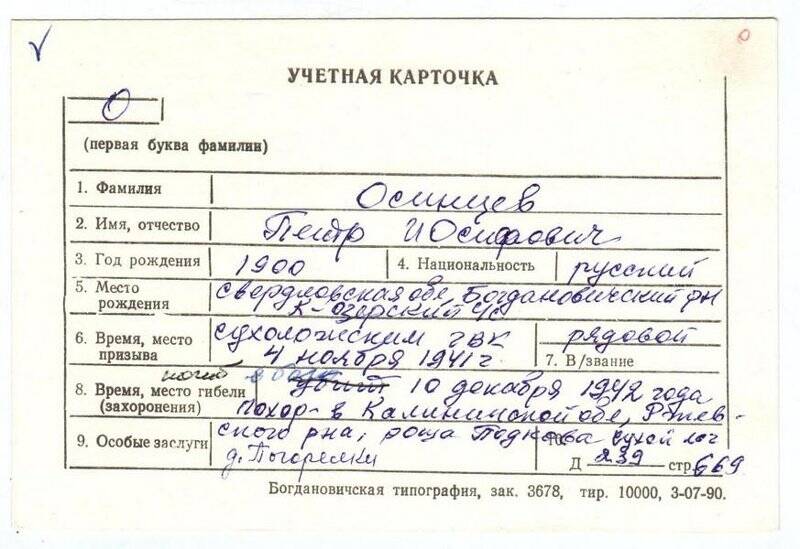 УЧЕТНАЯ КАРТОЧКА
О
(первая буква фамилии)
1. Фамилия Осинцев
2. Имя, отчество Петр Иосифович
3. Год рождения 1900 4. Национальность русский
5. Место рождения Свердловская обл, Богдановичский р-н
К-Озерский с/с
6. Время, место призыва Сухоложским ГВК
4 ноября 1941 г.
рядовой
7. В/звание
погиб в бою
8. Время, место гибели (захоронения) убит 10 декабря 1942 года
похор- в Калининской обл, Ржев-
9. Особые заслуги ского р-на, роща Подкова Сухой лог
д. Погорелки
Д 239 стр. 669
Богдановичская типография, зак. 3678, тир. 10000, 3-07-90.